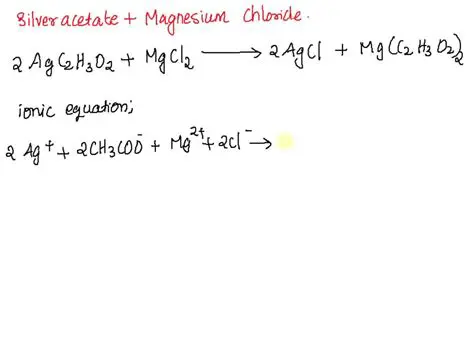 Silver acetate + Magnesium Chloride.
2 AgC₂H₃O₂ + MgCl₂ ⟶ 2AgCl + Mg(C₂H₃O₂)₂
ionic equation;
2 Ag⁺ + 2CH₃COO⁻ + Mg²⁺ + 2Cl⁻ →